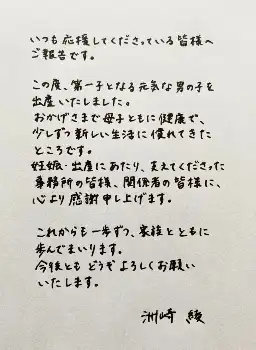 いつも応援してくださっている皆様へ
ご報告です。
この度、第一子となる元気な男の子を
出産いたしました。
おかげさまで母子ともに健康で、
少しずつ新しい生活に慣れてきた
ところです。
妊娠・出産にあたり、支えてくださった
事務所の皆様、関係者の皆様に、
心より感謝申し上げます。
これからも一歩ずつ、家族とともに
歩んでまいります。
今後とも どうぞよろしくお願い
いたします。
洲崎 綾